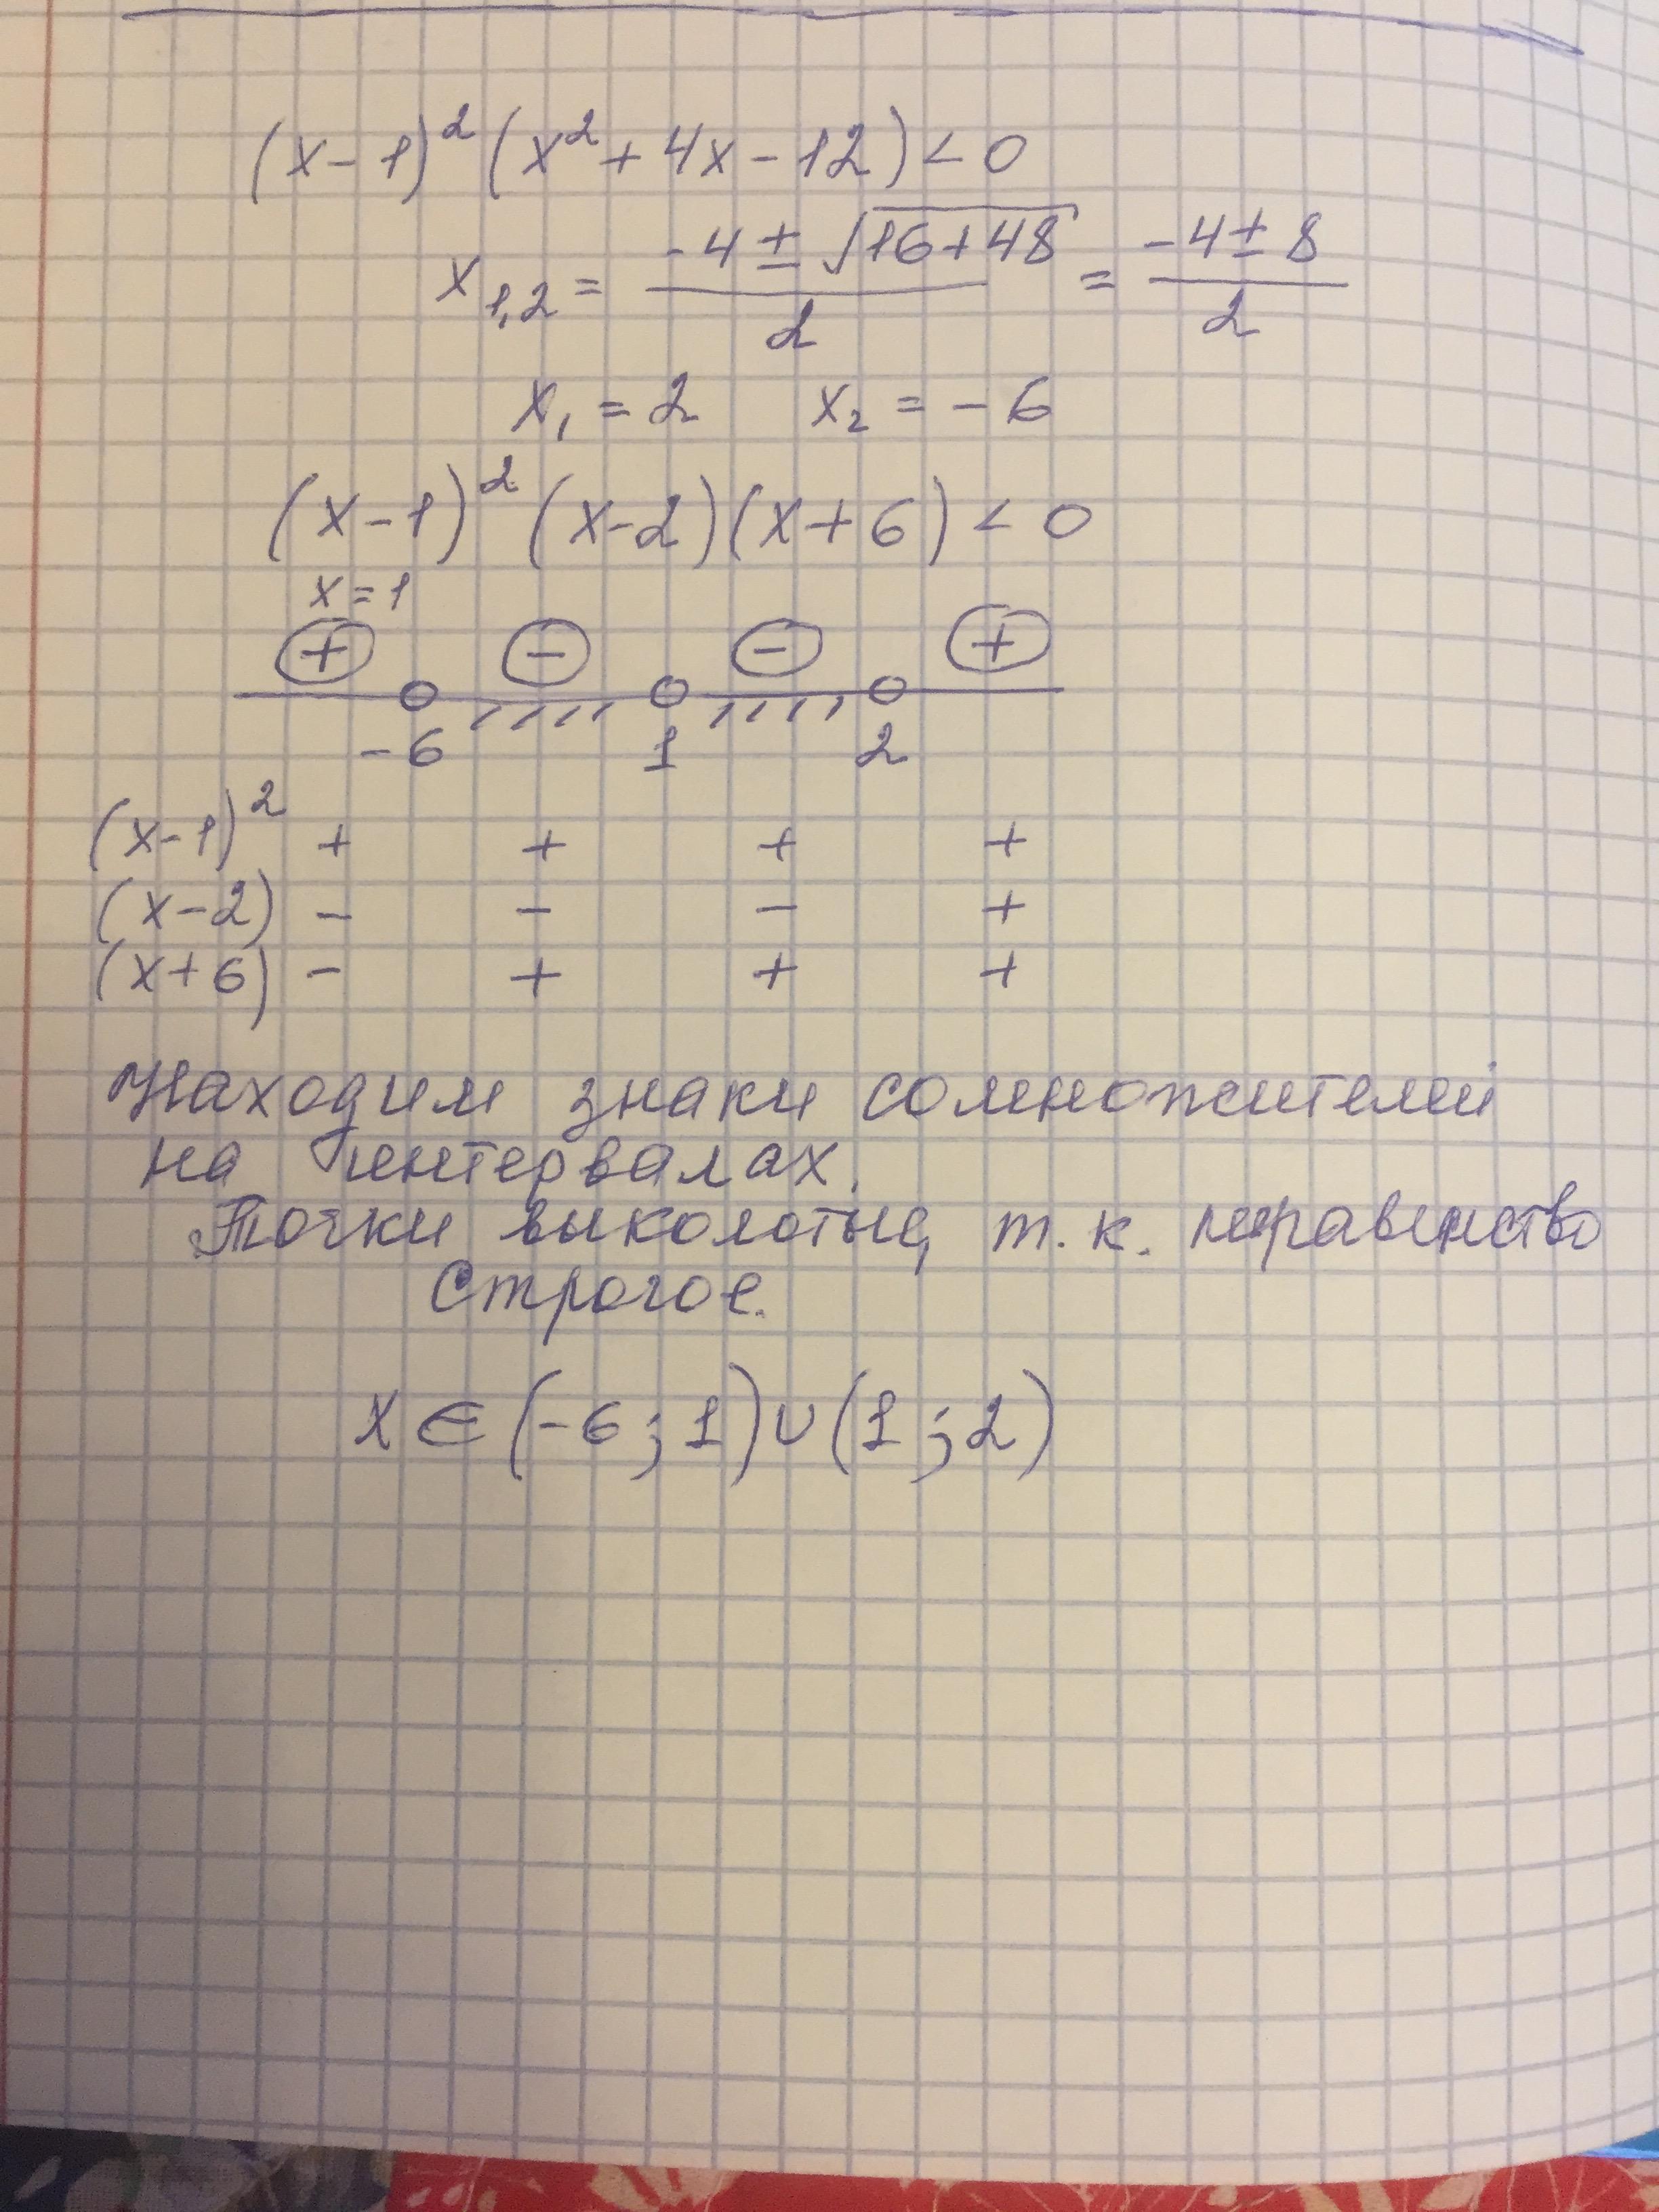 (x-1)² (x² + 4x - 12) < 0
x₁,₂ = (-4 ± √(16+48))/2 = (-4 ± 8)/2
x₁ = 2 x₂ = -6
(x-1)² (x-2)(x+6) < 0
x = 1
+ - - +
-6 1 2
(x-1)² + + + +
(x-2) - - - +
(x+6) - + + +
Находим знаки сомножителей
на интервалах.
Точки выколотые, т. к. неравенство
строгое.
x ∈ (-6; 1) ∪ (1; 2)